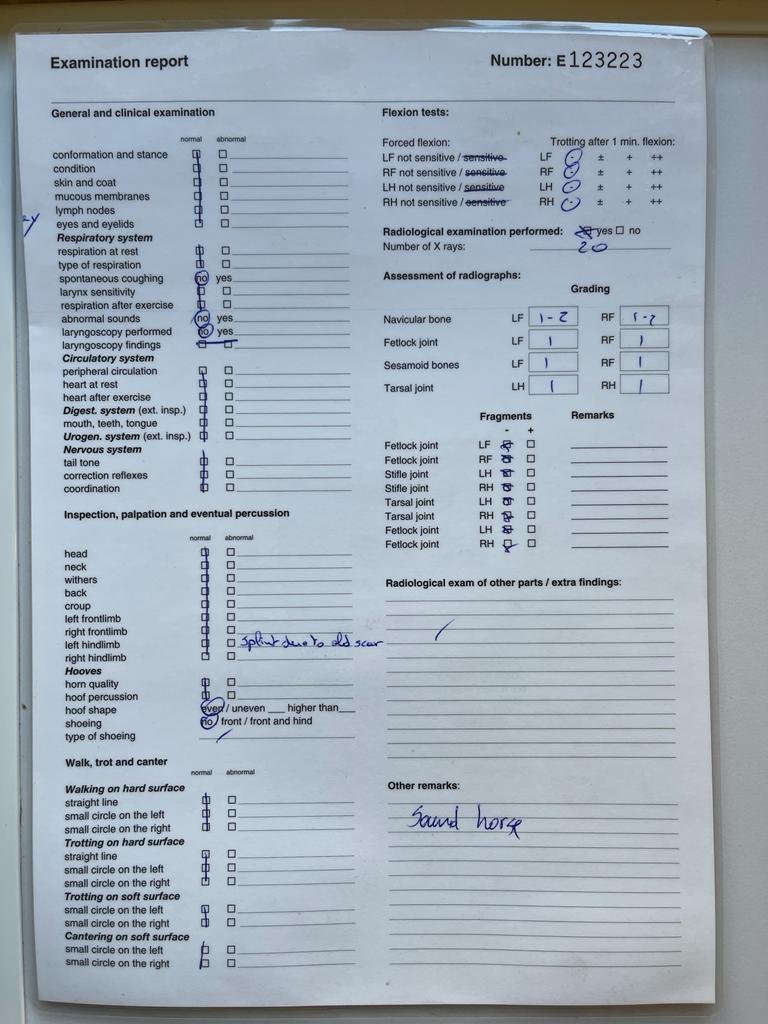 Examination report
Number: E 123223
General and clinical examination
normal abnormal
conformation and stance
condition
skin and coat
mucous membranes
lymph nodes
eyes and eyelids
Respiratory system
respiration at rest
type of respiration
spontaneous coughing no yes
larynx sensitivity
respiration after exercise
abnormal sounds no yes
laryngoscopy performed no yes
laryngoscopy findings
Circulatory system
peripheral circulation
heart at rest
heart after exercise
Digest. system (ext. insp.)
mouth, teeth, tongue
Urogen. system (ext. insp.)
Nervous system
tail tone
correction reflexes
coordination
Inspection, palpation and eventual percussion
normal abnormal
head
neck
withers
back
croup
left frontlimb
right frontlimb
left hindlimb splint due to old scar
right hindlimb
Hooves
horn quality
hoof percussion
hoof shape even / uneven ___ higher than___
shoeing no / front / front and hind
type of shoeing
Walk, trot and canter
normal abnormal
Walking on hard surface
straight line
small circle on the left
small circle on the right
Trotting on hard surface
straight line
small circle on the left
small circle on the right
Trotting on soft surface
small circle on the left
small circle on the right
Cantering on soft surface
small circle on the left
small circle on the right
Flexion tests:
Forced flexion: Trotting after 1 min. flexion:
LF not sensitive / sensitive LF - ± + ++
RF not sensitive / sensitive RF - ± + ++
LH not sensitive / sensitive LH - ± + ++
RH not sensitive / sensitive RH - ± + ++
Radiological examination performed: yes no
Number of X rays: 20
Assessment of radiographs:
Grading
Navicular bone LF 1-2 RF 1-2
Fetlock joint LF 1 RF 1
Sesamoid bones LF 1 RF 1
Tarsal joint LH 1 RH 1
Fragments Remarks
- +
Fetlock joint LF
Fetlock joint RF
Stifle joint LH
Stifle joint RH
Tarsal joint LH
Tarsal joint RH
Fetlock joint LH
Fetlock joint RH
Radiological exam of other parts / extra findings:
Other remarks:
Sound horse